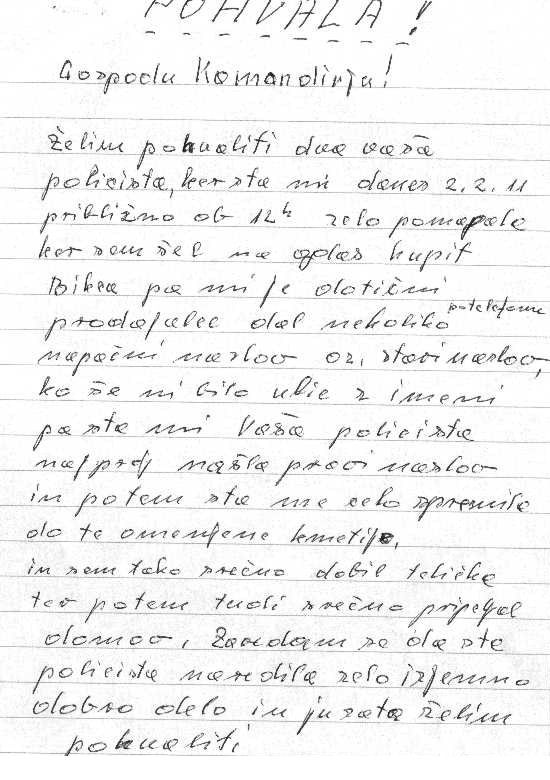 POHVALA!
Gospodu Komandirju!
Želim pohvaliti dva vaša
policista, ker sta mi danes 2.2.11
približno ob 12h zelo pomagala
ker sem šel na oglas kupit
Bikca pa mi je dotični
po telefonu
prodajalec dal nekoliko
napačni naslov oz. stari naslov,
ko še ni bilo ulic z imeni
pa sta mi Vaša policista
najprej našla pravi naslov
in potem sta me celo spremila
do te omenjene kmetije,
in sem tako srečno dobil telička
ter potem tudi srečno pripeljal
domov, Zavedam se da sta
policista naredila zelo izjemno
dobro delo in ju zato želim
pohvaliti